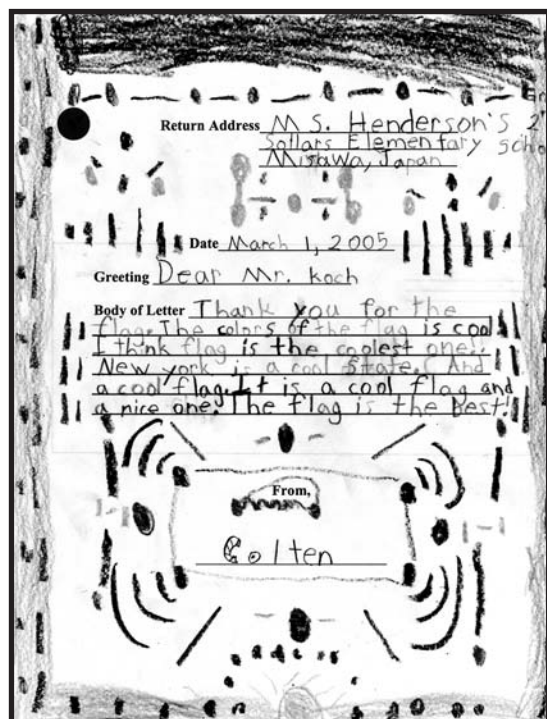 Return Address Ms. Henderson's 2
Sollars Elementary Scho
Misawa, Japan
Date March 1, 2005
Greeting Dear Mr. Koch
Body of Letter Thank you for the
flag. The colors of the flag is cool
I think flag is the coolest one!!
New york is a cool state. And
a cool flag. It is a cool flag and
a nice one. The flag is the best!
From,
Colten